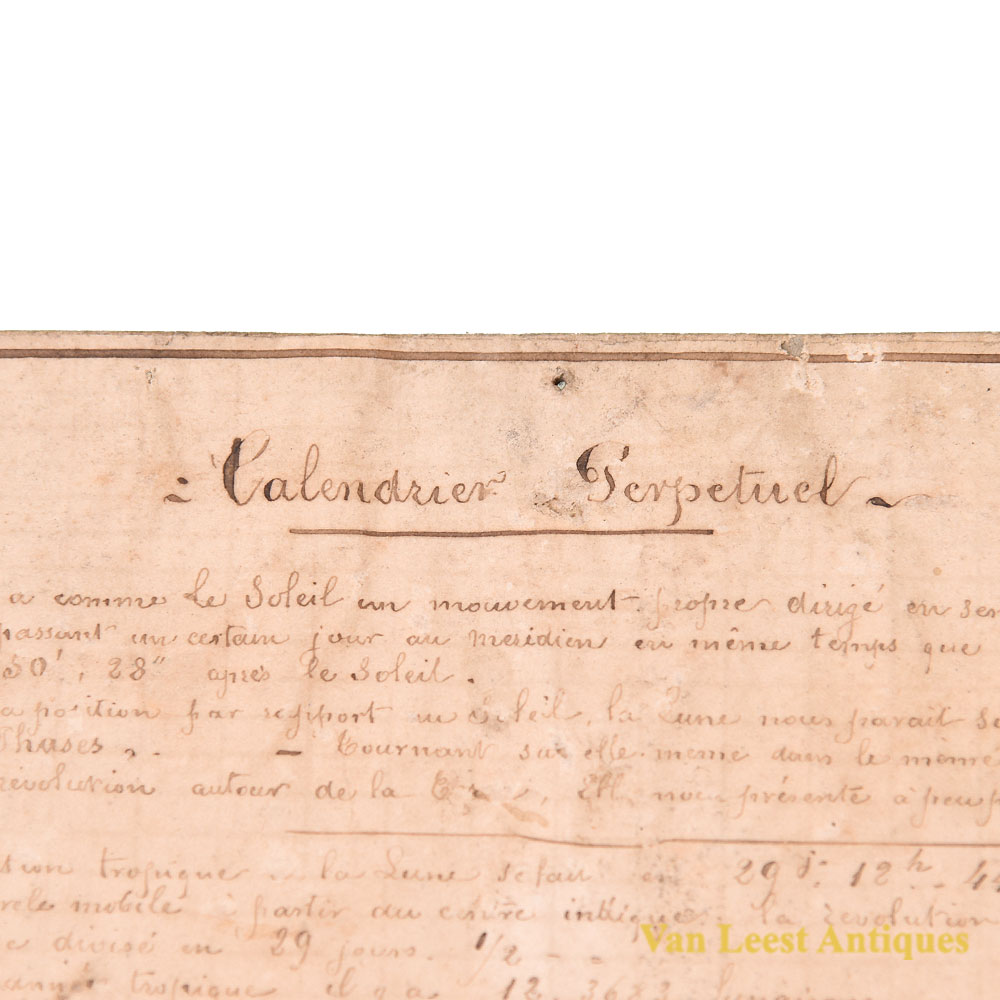 - Calendrier Perpetuel -
a comme le Soleil un mouvement propre dirigé en sen
passant un certain jour au meridien en même temps que
50', 28" après le Soleil.
a position par rapport au Soleil, la Lune nous parait
Phases, - Tournant sur elle même dans le même
révolution autour de la nous présente à peu p
tropique la Lune se fait en 29 j. 12 h. 44
mobile à partir du centre indique la révolution
e divisé en 29 jours 1/2 - -
tropique il y a 12, 3683
Van Leest Antiques